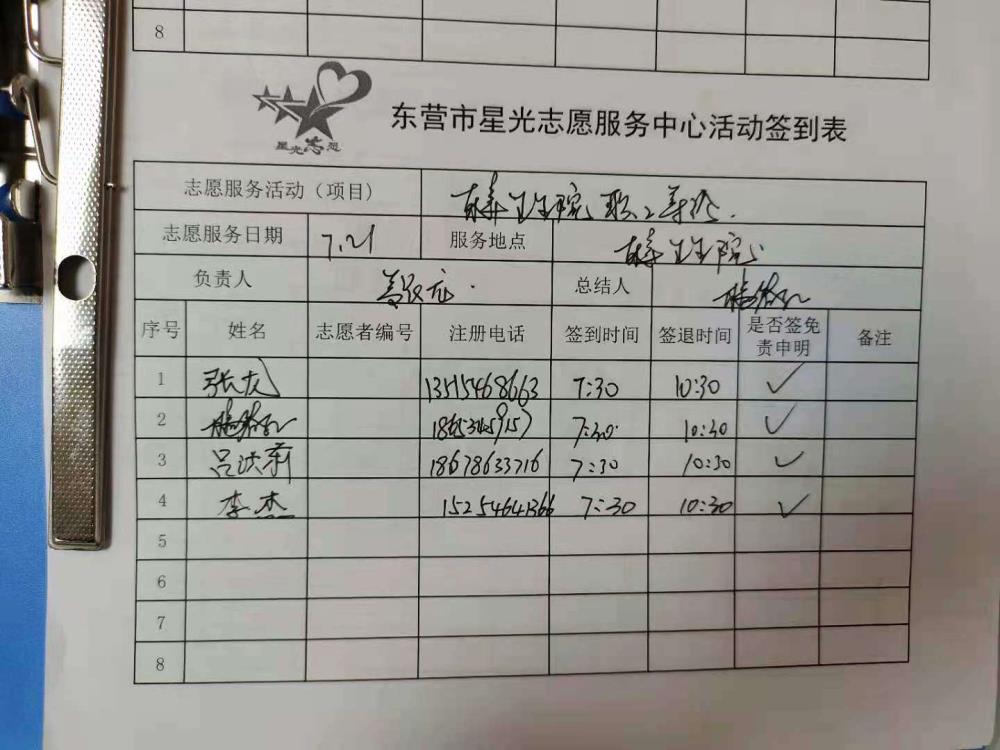 8
星光志愿
东营市星光志愿服务中心活动签到表
志愿服务活动（项目） 卫生院 职工
志愿服务日期 7.21 服务地点 卫生院
负责人 总结人
序号 姓名 志愿者编号 注册电话 签到时间 签退时间 是否签免责申明 备注
1 张友 13515468663 7:30 10:30 ✓
2 7:30 10:30 ✓
3 吕洪莉 18678633716 7:30 10:30 ✓
4 李杰 15254641366 7:30 10:30 ✓
5
6
7
8